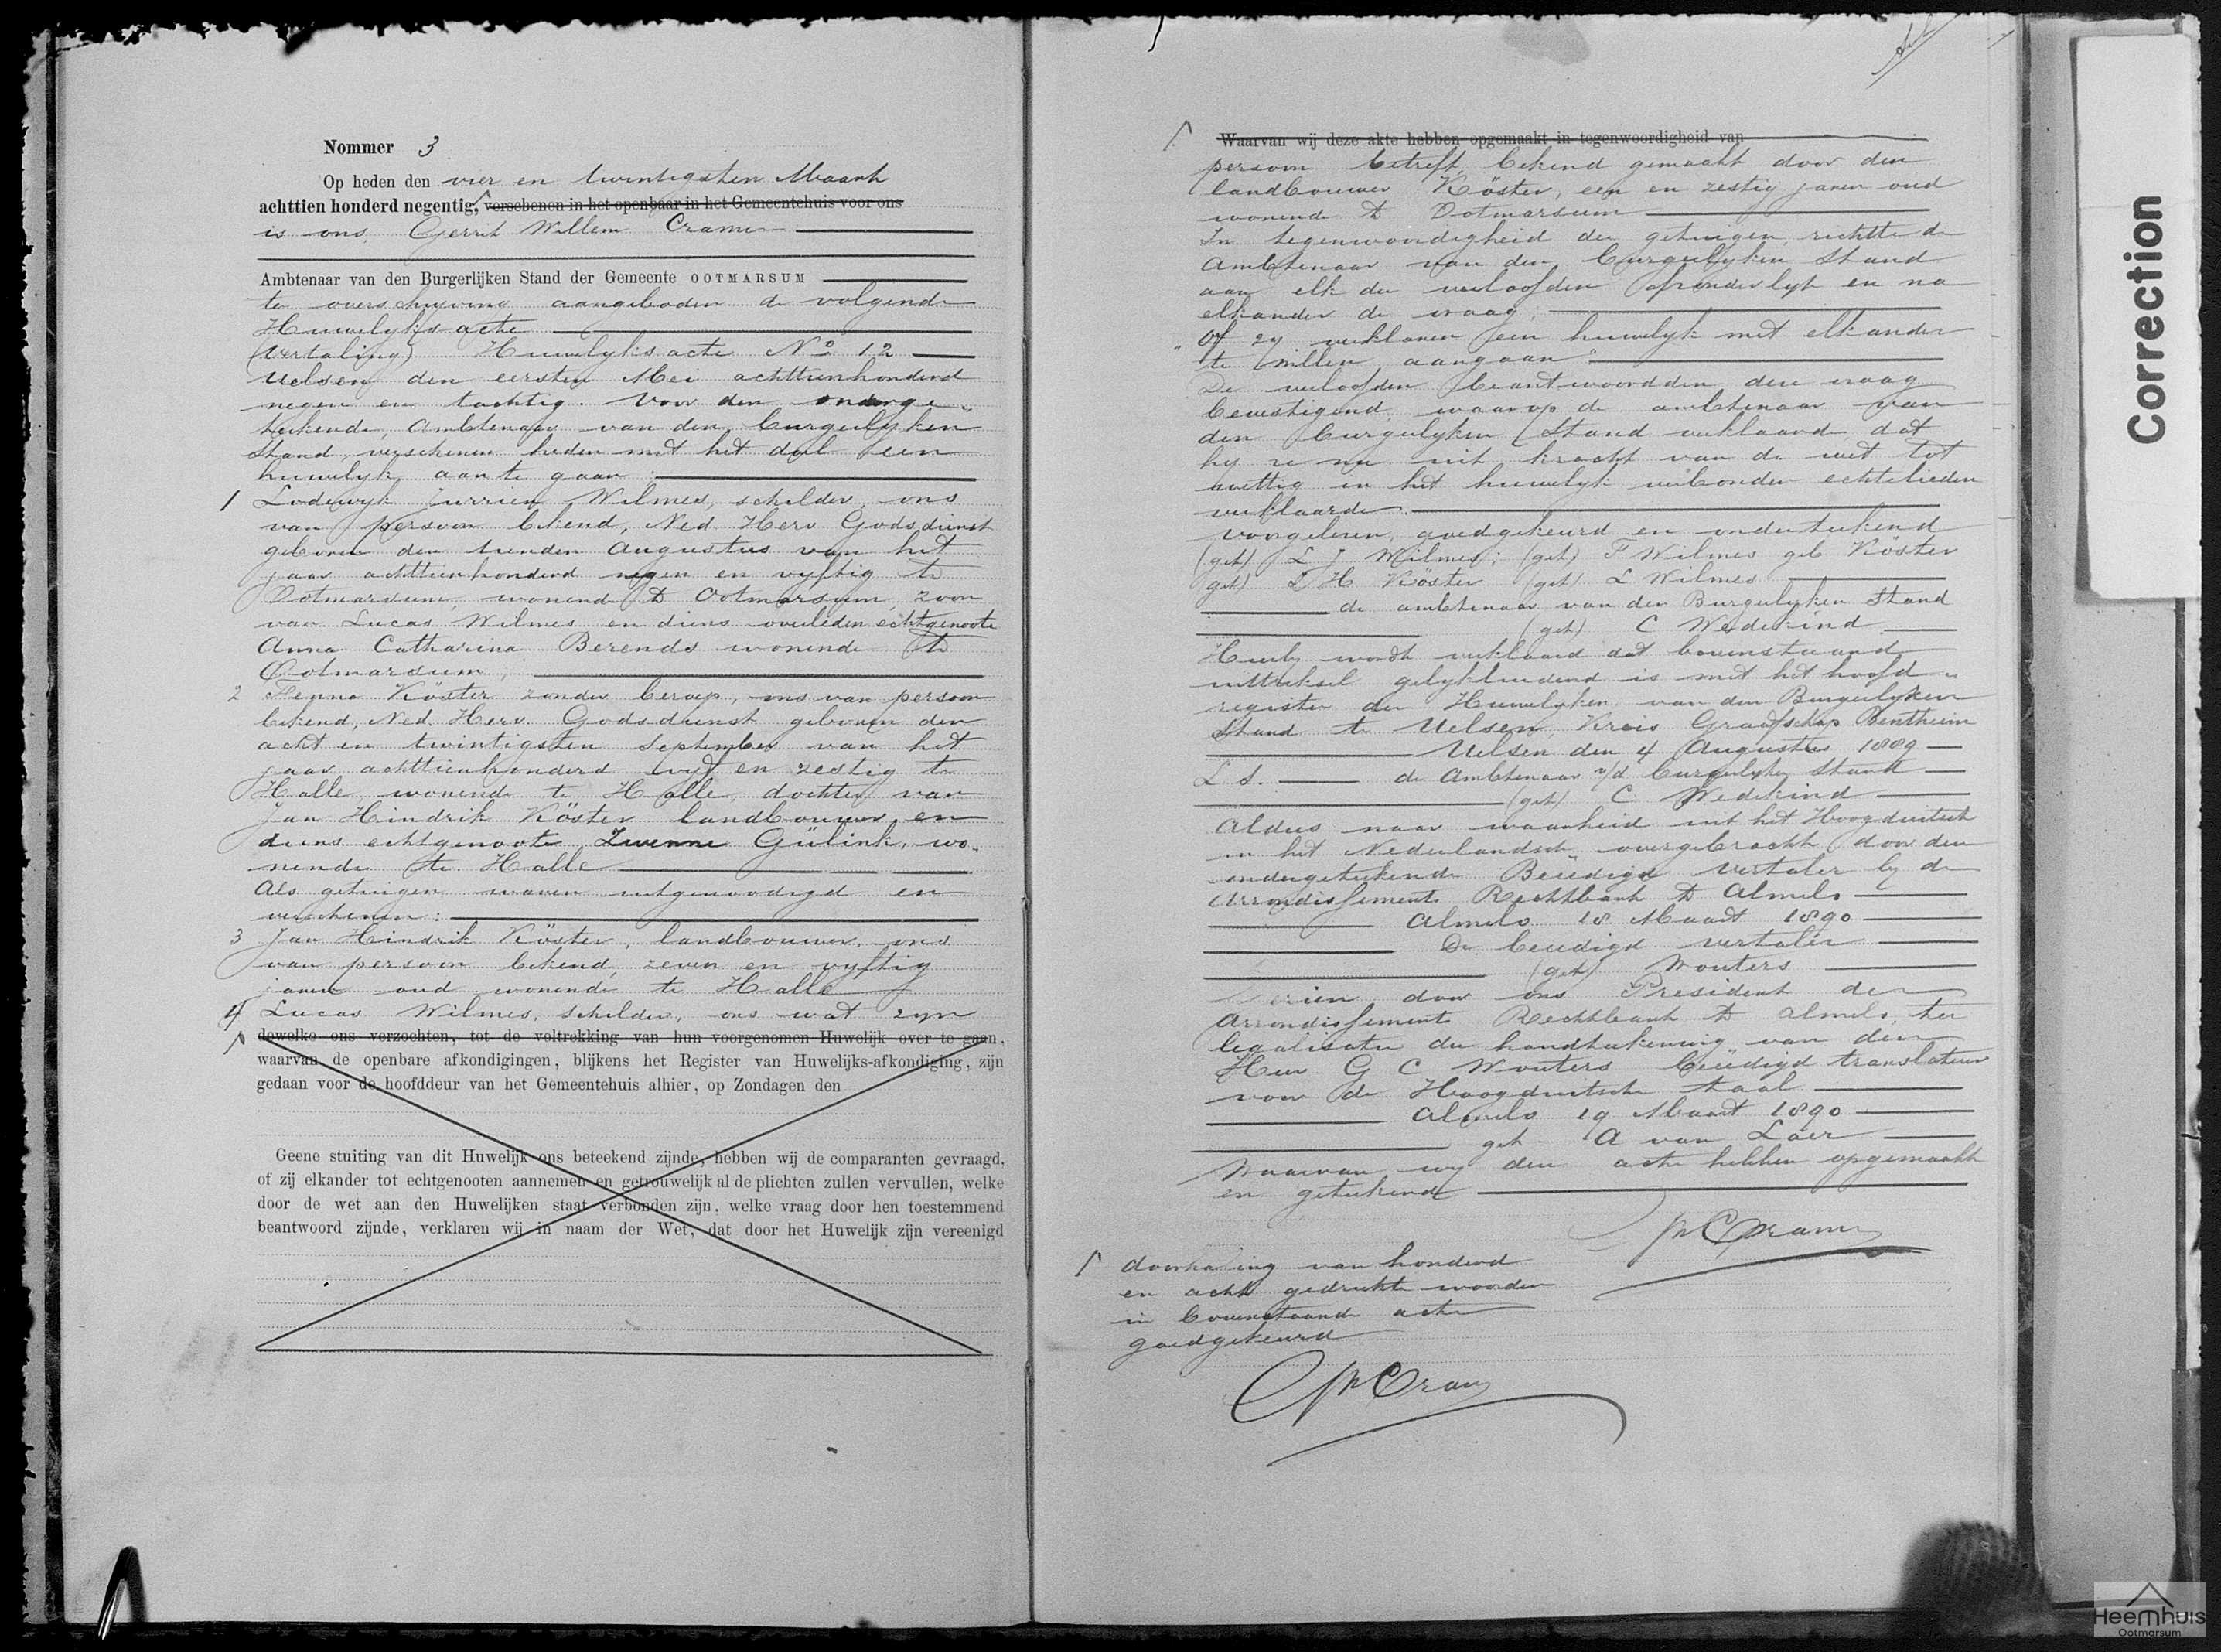 Nommer 3
Op heden den vier en twintigsten Maart
achttien honderd negentig, verschenen in het openbaar in het Gemeentehuis voor ons
is ons, Gerrit Willem Cramer
Ambtenaar van den Burgerlijken Stand der Gemeente OOTMARSUM
ter overschrijving aangeboden de volgende
Huwelijks acte
(Vertaling) Huwelijks acte No 12
Uelsen den eersten Mei achttienhonderd
negen en tachtig. Voor den onderge-
teekende, Ambtenaar van den burgerlijken
Stand, verschenen heden met het doel een
huwelijk aan te gaan:
1 Lodewijk Jurrien Wilmes, schilder, ons
van persoon bekend, Ned. Herv. Godsdienst
geboren den tienden Augustus van het
jaar achttienhonderd negen en vijftig te
Ootmarsum, wonende te Ootmarsum, zoon
van Lucas Wilmes en diens overleden echtgenoote
Anna Catharina Berends wonende te
Ootmarsum,
2 Fenna Köster zonder beroep, ons van persoon
bekend, Ned. Herv. Godsdienst geboren den
acht en twintigsten September van het
jaar achttienhonderd vijf en zestig te
Halle wonende te Halle, dochter van
Jan Hindrik Köster landbouwer en
diens echtgenoote, Zwenne Gülink, wo-
nende te Halle
Als getuigen waren uitgenoodigd en
verschenen:
3 Jan Hindrik Köster, landbouwer, ons
van persoon bekend, zeven en vijftig
jaren oud wonende te Halle
4 Lucas Wilmes, schilder, ons wat zijn
dewelke ons verzochten, tot de voltrekking van hun voorgenomen Huwelijk over te gaan,
waarvan de openbare afkondigingen, blijkens het Register van Huwelijks-afkondiging, zijn
gedaan voor de hoofddeur van het Gemeentehuis alhier, op Zondagen den
Geene stuiting van dit Huwelijk ons beteekend zijnde, hebben wij de comparanten gevraagd,
of zij elkander tot echtgenooten aannemen en getrouwelijk al de plichten zullen vervullen, welke
door de wet aan den Huwelijken staat verbonden zijn. welke vraag door hen toestemmend
beantwoord zijnde, verklaren wij in naam der Wet, dat door het Huwelijk zijn vereenigd
Waarvan wij deze akte hebben opgemaakt in tegenwoordigheid van
persoon betreft, bekend gemaakt door den
landbouwer Köster, een en zestig jaren oud
wonende te Ootmarsum
In tegenwoordigheid der getuigen, richtte de
Ambtenaar van den burgerlijken Stand
aan elk der verloofden afzonderlijk en na
elkander de vraag,
"Of zij verklaren een huwelijk met elkander
te willen aangaan"
De verloofden beantwoordden deze vraag
bevestigend, waarop de ambtenaar van
den burgerlijken Stand verklaarde, dat
hij ze nu uit kracht van de wet tot
wettig in het huwelijk verbonden echtelieden
verklaarde.
Voorgelezen, goedgekeurd en onderteekend
(get) L J Wilmes; (get) F Wilmes geb Köster
(get) J H Köster (get) L Wilmes
de ambtenaar van den Burgerlijken Stand
(get) C Wedekind
Hierbij wordt verklaard dat bovenstaand
uittreksel gelijkluidend is met het hoofd-
register der Huwelijken van den Burgerlijken
Stand te Uelsen, Kreis Graafschap Bentheim
Uelsen den 4 Augustus 1889
L S. de Ambtenaar v/d burgerlijke Stand
(get) C Wedekind
Aldus naar waarheid uit het Hoogduitsch
in het Nederlandsch overgebracht door den
ondergeteekende Beëedigd Vertaler bij de
Arrondissements Rechtbank te Almelo
Almelo 18 Maart 1890
De beëedigd vertaler
(get) Wouters
Gezien door ons President der
Arrondissements Rechtbank te Almelo, ter
legalisatie der handteekening van den
Heer G C Wouters beëedigd translateur
voor de Hoogduitsche taal
Almelo 19 Maart 1890
get. A van Laer
Waarvan wij deze acte hebben opgemaakt
en geteekend
GWCramer
doorhaling van honderd
en acht gedrukte woorden
in bovenstaande acte
goedgekeurd
GWCramer
Correction
Heemhuis
Ootmarsum